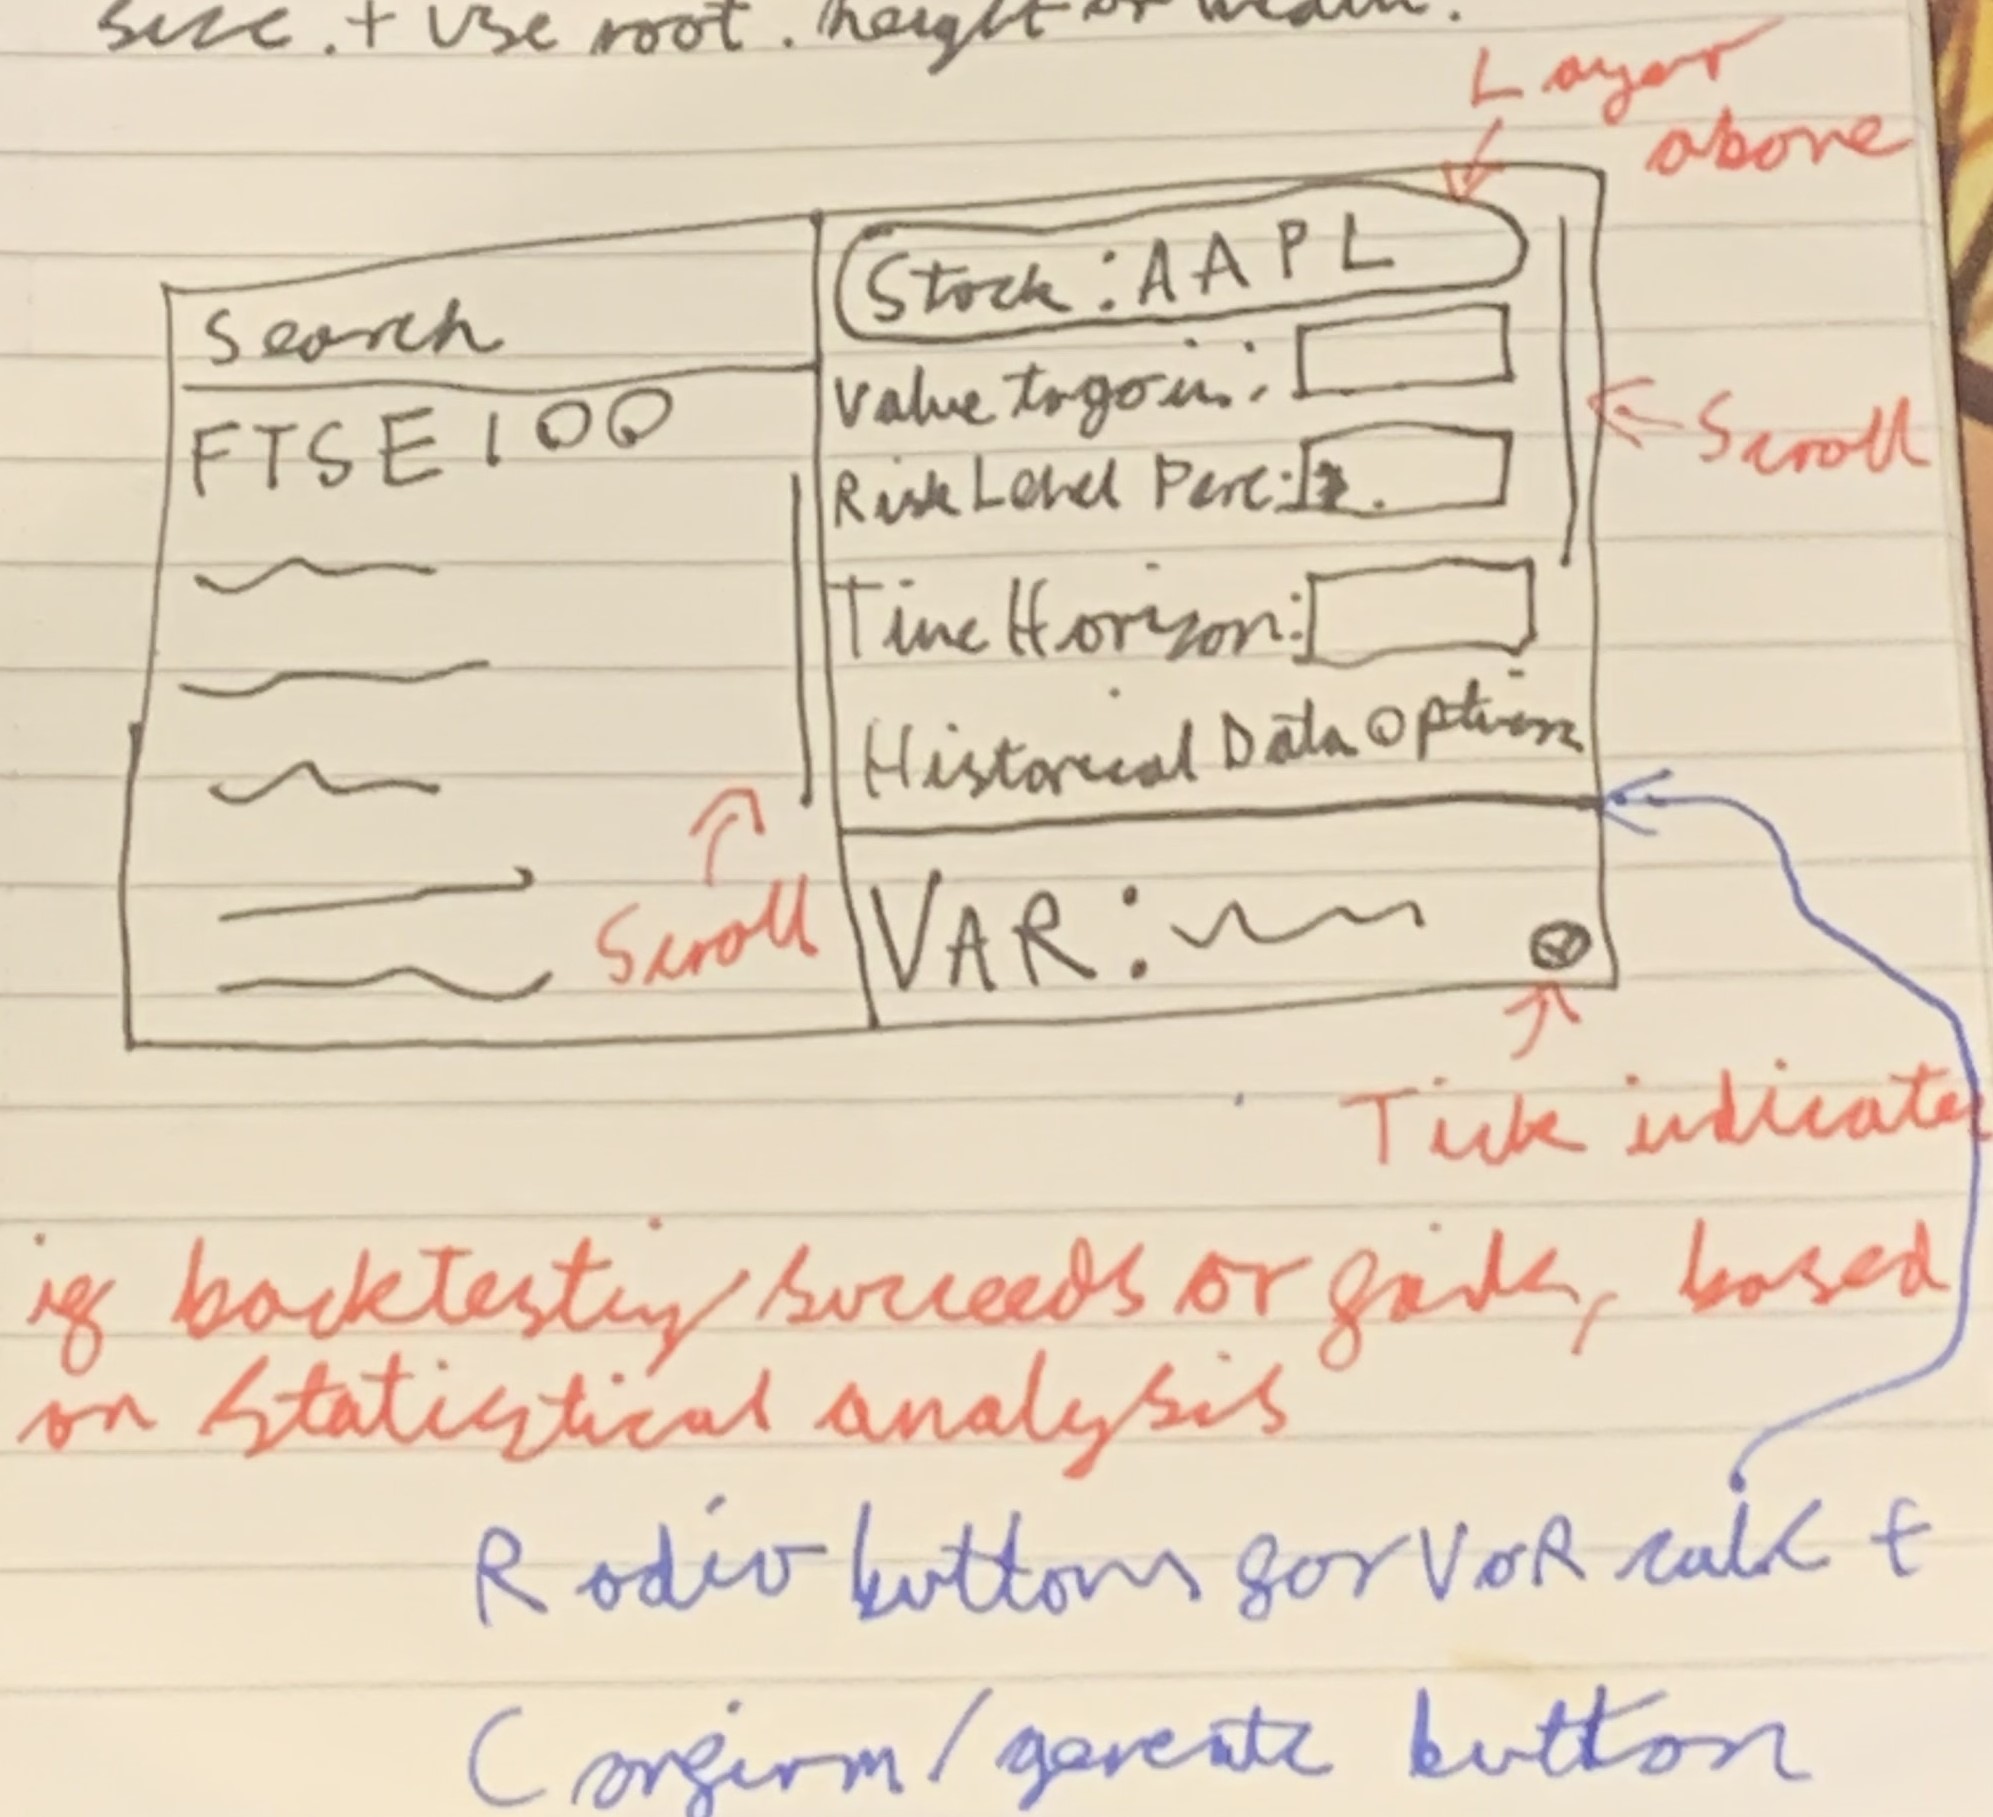 size. + Use root. height or width.
Layer
above
Search
FTSE 100
Stock: AAPL
Value to go in:
Risk Level Perc:
Time Horizon:
Historical Data Option
Scroll
Scroll
VAR:
Tick indicates
if backtesting succeeds or fails, based
on statistical analysis
Radio buttons for VaR calc +
Confirm/generate button